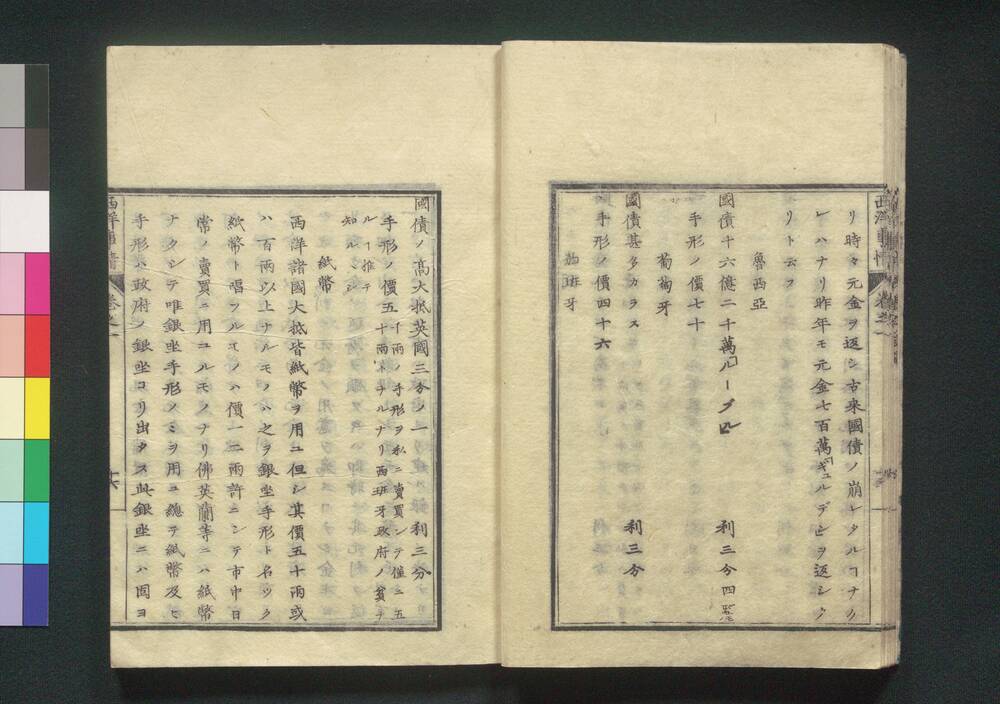 リ時々元金ヲ返シ古来國債ノ崩レタルヿナケ
レハナリ昨年モ元金七百萬ギュルデンヲ返シタ
リト云フ
魯西亞
國債十六億二千萬ルーブル 利三分四
手形ノ價七十
葡萄牙
國債甚タカラス 利三分
手形ノ價四十六
西班牙
西洋事情 卷之一
國債ノ高大抵英國三分ノ一 利三分
手形ノ價五十兩
一兩ノ手形ヲ私ニ賣買シテ僅ニ五
ナルナリ西班牙政府ノ貧キ
ルヿ推テ
知ルヘシ
紙幣
西洋諸國大抵皆紙幣ヲ用ユ但シ其價五十兩或
ハ百兩以上ナルモノハ之ヲ銀坐手形ト名ツク
紙幣ト唱フルモノハ價一二兩許ニシテ市中日
常ノ賣買ニ用ユルモノナリ佛英蘭等ニハ紙幣
ナクシテ唯銀坐手形ノミヲ用ユ總テ紙幣及ヒ
手形ハ政府ノ銀坐ヨリ出タス此銀坐ニハ固ヨ
西洋事情 卷之一 十六